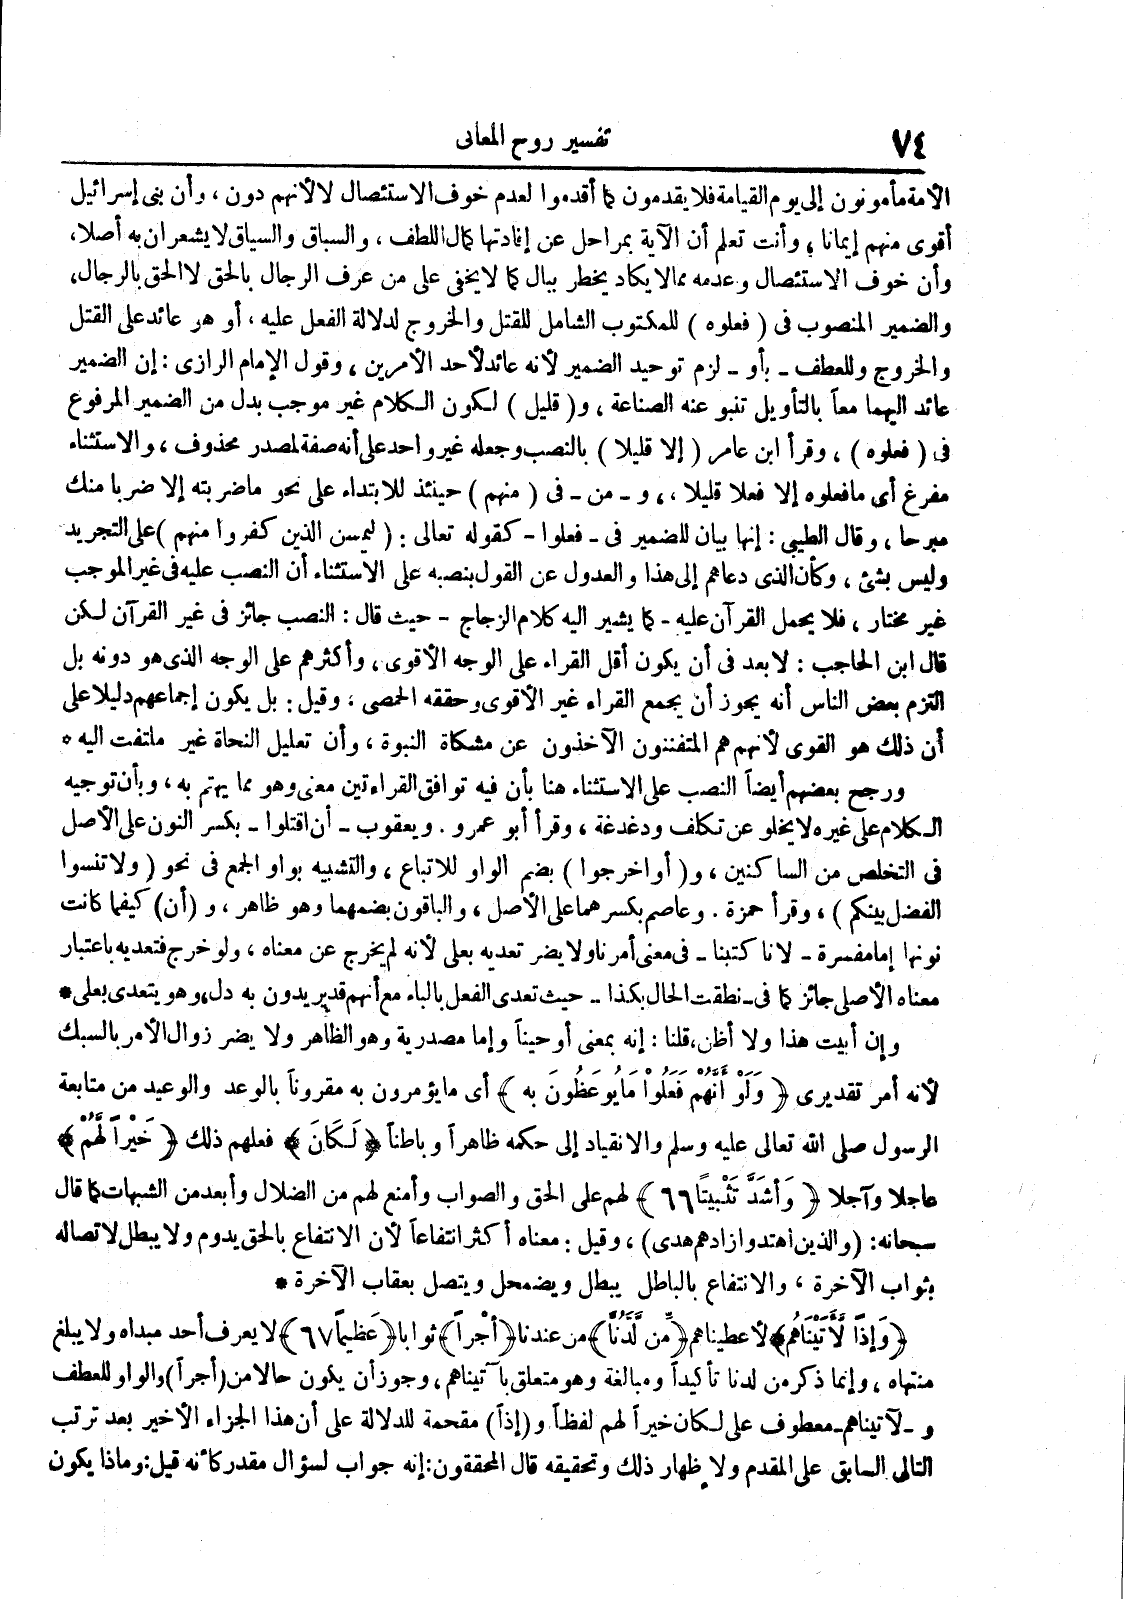 ٧٤
تفسير روح المعانى
الأمة مأمونون إلى يوم القيامة فلا يقدمون كما أقدموا لعدم خوف الاستئصال لا لأنهم دون ، وأن بنى إسرائيل
أقوى منهم إيمانا ، وأنت تعلم أن الآية بمراحل عن إفادتها كمال اللطف ، والسباق والسياق لا يشعران به أصلا ،
وأن خوف الاستئصال وعدمه ممالا يكاد يخطر ببال كما لا يخفى على من عرف الرجال بالحق لا الحق بالرجال،
والضمير المنصوب فى ( فعلوه ) للمكتوب الشامل للقتل والخروج لدلالة الفعل عليه ، أو هو عائد على القتل
والخروج وللعطف ـ بأو ـ لزم توحيد الضمير لأنه عائد لأحد الأمرين ، وقول الإمام الرازى : إن الضمير
عائد اليهما معاً بالتأويل تنبو عنه الصناعة ، و( قليل ) لكون الكلام غير موجب بدل من الضمير المرفوع
فى ( فعلوه ) ، وقرأ ابن عامر ( إلا قليلا ) بالنصب وجعله غير واحد على أنه صفة لمصدر محذوف ، والاستثناء
مفرغ أى مافعلوه إلا فعلا قليلا ، ، و ـ من ـ فى ( منهم ) حينئذ للابتداء على نحو ماضربته إلا ضربا منك
مبرحا ، وقال الطيبى : إنها بيان للضمير فى ـ فعلوا - كقوله تعالى : ( ليمسن الذين كفروا منهم ) على التجريد
وليس بشئ ، وكأن الذى دعاهم إلى هذا والعدول عن القول بنصبه على الاستثناء أن النصب عليه فى غير الموجب
غير مختار ، فلا يحمل القرآن عليه - كما يشير اليه كلام الزجاج - حيث قال : النصب جائز فى غير القرآن لكن
قال ابن الحاجب : لا بعد فى أن يكون أقل القراء على الوجه الأقوى ، وأكثرهم على الوجه الذى هو دونه بل
التزم بعض الناس أنه يجوز أن يجمع القراء غير الأقوى وحققه الحمصى ، وقيل : بل يكون إجماعهم دليلا على
أن ذلك هو القوى لأنهم هم المتفننون الآخذون عن مشكاة النبوة ، وأن تعليل النحاة غير ملتفت اليه ٥
ورجح بعضهم أيضاً النصب على الاستثناء هنا بأن فيه توافق القراءتين معنى وهو مما يهتم به ، وبأن توجيه
الكلام على غيره لا يخلو عن تكلف ودغدغة ، وقرأ أبو عمرو . ويعقوب ـ أن اقتلوا ـ بكسر النون على الأصل
فى التخلص من الساكنين ، و( أو اخرجوا ) بضم الواو للاتباع ، والتشبيه بواو الجمع فى نحو ( ولا تنسوا
الفضل بينكم ) ، وقرأ حمزة . وعاصم بكسرهما على الأصل ، والباقون بضمهما وهو ظاهر ، و (أن) كيفما كانت
نونها إما مفسرة ـ لانا كتبنا ـ فى معنى أمرنا ولا يضر تعديه بعلى لأنه لم يخرج عن معناه ، ولو خرج فتعديه باعتبار
معناه الأصلى جائز كما فى ـ نطقت الحال بكذا ـ حيث تعدى الفعل بالباء مع أنهم قد يريدون به دل، وهو يتعدى بعلى *
وإن أبيت هذا ولا أظن، قلنا : إنه بمعنى أوحينا وإما مصدرية وهو الظاهر ولا يضر زوال الأمر بالسبك
لأنه أمر تقديرى ﴿ وَلَوْ أَنَّهُمْ فَعَلُوا مَا يُوعَظُونَ به ﴾ أى ما يؤمرون به مقروناً بالوعد والوعيد من متابعة
الرسول صلى الله تعالى عليه وسلم والانقياد إلى حكمه ظاهراً وباطناً ﴿ لَكَانَ ﴾ فعلهم ذلك ﴿ خَيْراً لَّهُمْ ﴾
عاجلا وآجلا ﴿ وَأَشَدَّ تَثْبيتًا ٦٦ ﴾ لهم على الحق والصواب وأمنع لهم من الضلال وأبعد من الشبهات كما قال
سبحانه: (والذين اهتدوا زادهم هدى) ، وقيل : معناه أكثر انتفاعاً لأن الانتفاع بالحق يدوم ولا يبطل لاتصاله
بثواب الآخرة ، والانتفاع بالباطل يبطل ويضمحل ويتصل بعقاب الآخرة *
﴿ وَإذًا لَّآتَيْنَاهُم﴾ لأعطيناهم ﴿ مِّن لَّدُنَّا ﴾ من عندنا ﴿ أَجْراً ﴾ ثوابا ﴿ عَظيمًا ٦٧ ﴾ لا يعرف أحد مبداه ولا يبلغ
منتهاه ، وإنما ذكر من لدنا تأكيداً ومبالغة وهو متعلق بآتيناهم ، وجوز أن يكون حالا من (أجراً) والواو للعطف
و ـ لآتيناهم ـ معطوف على لكان خيراً لهم لفظاً و (إذاً) مقحمة للدلالة على أن هذا الجزاء الأخير بعد ترتب
التالى السابق على المقدم ولإظهار ذلك وتحقيقه قال المحققون: إنه جواب لسؤال مقدر كأنه قيل: وماذا يكون